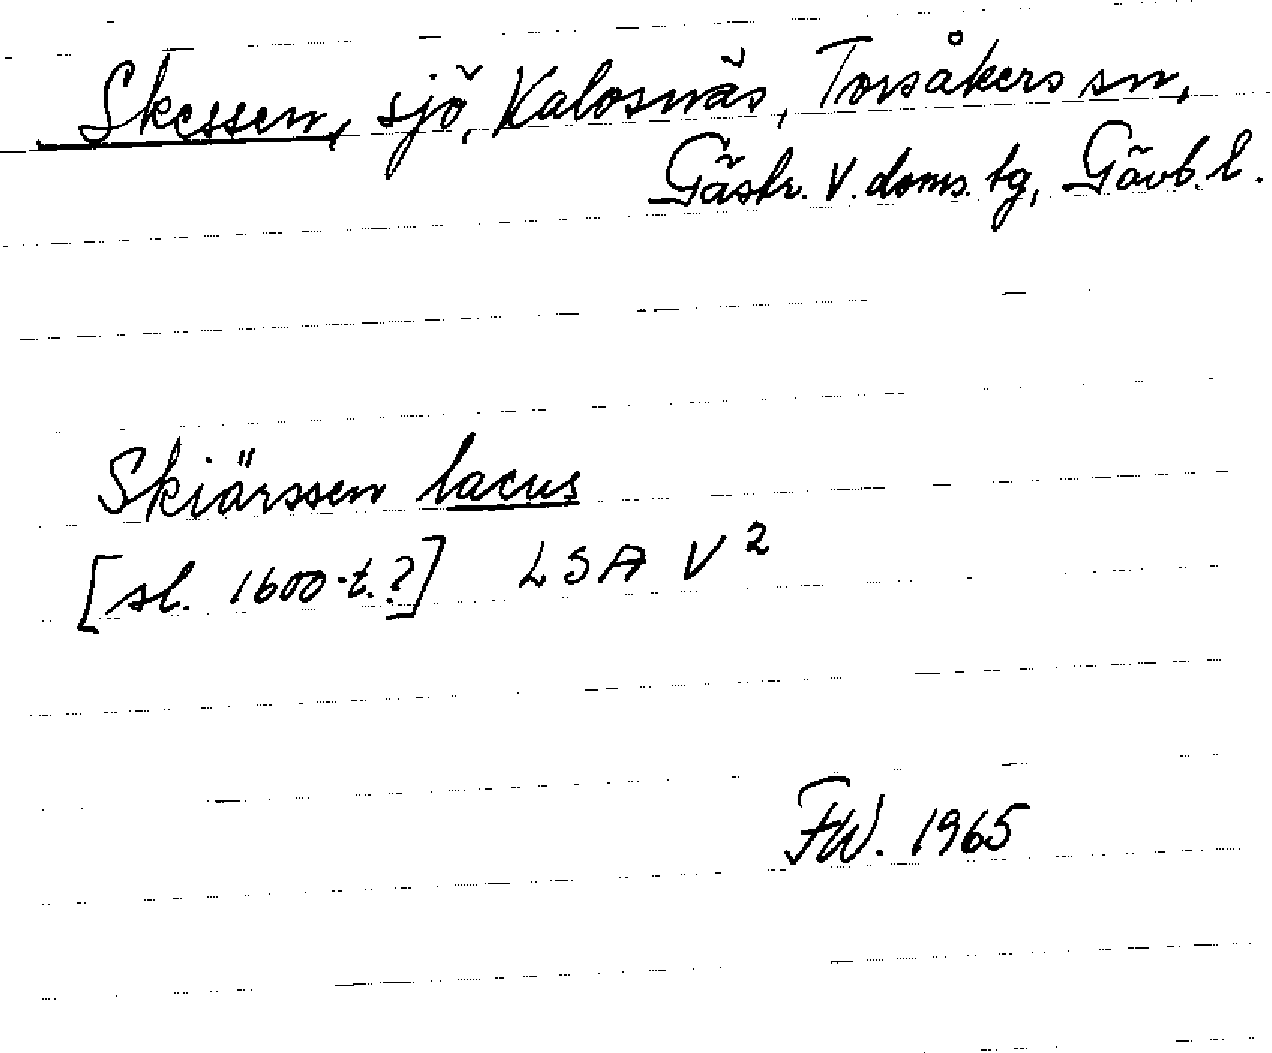 Skessen, sjö, Kalosnäs, Torsåkers sn,
Gästr. V. doms. tg, Gävb. l.
Skiärssen lacus
[sl. 1600-t.?] LSA V²
FW. 1965